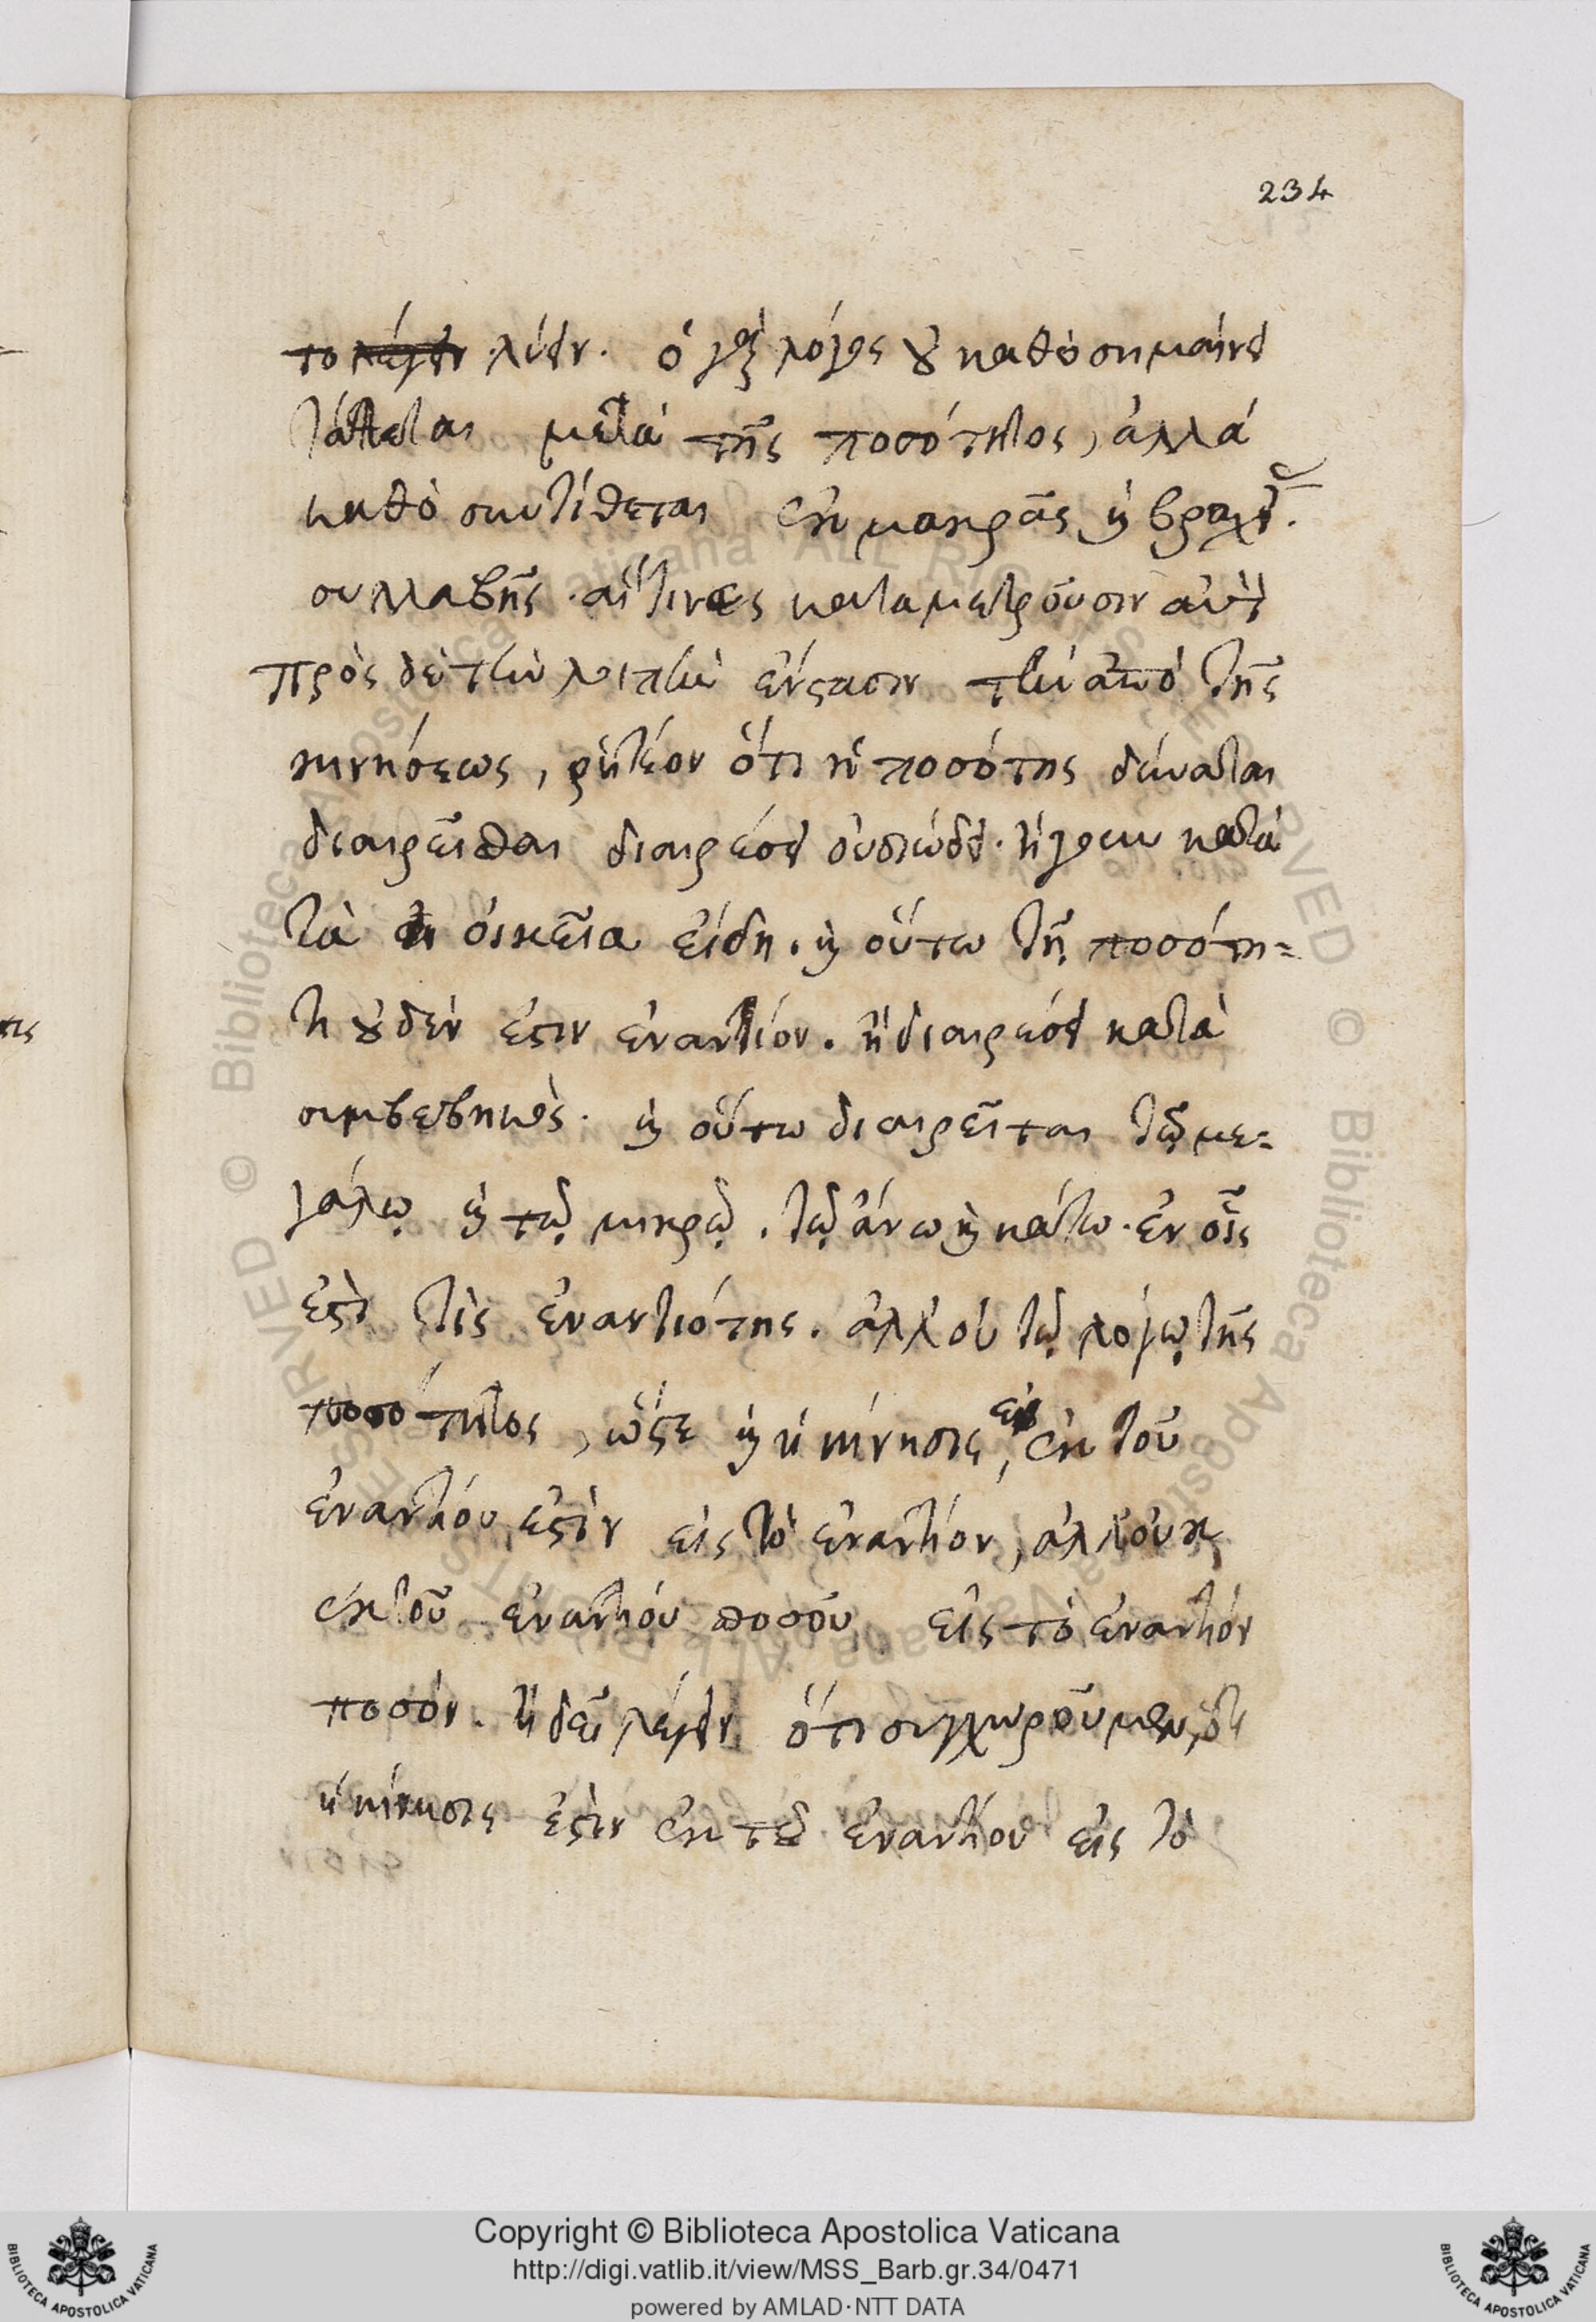 234
το λύειν. ὁ γὰρ λόγος οὐ καθὸ σημαίνει
τάττεται μετὰ τῆς ποσότητος, ἀλλὰ
καθὸ συντίθεται ἐκ μακρᾶς καὶ βραχείας
συλλαβῆς. αἵτινες καταμετροῦσιν αὐτὸν
πρὸς δὲ τὴν λοιπὴν ἔνστασιν τὴν ἀπὸ τῆς
κινήσεως, ῥητέον ὅτι ἡ ποσότης δύναται
διαιρεῖσθαι διαιρέσει οὐσιώδει. ἤγουν κατὰ
τὰ οἰκεῖα εἴδη. καὶ οὕτω τῇ ποσότη-
τι οὐδέν ἐστιν ἐναντίον. ἢ διαιρέσει κατὰ
συμβεβηκὸς. καὶ οὕτω διαιρεῖται τῷ με-
γάλῳ καὶ τῷ μικρῷ. τῷ ἄνω καὶ κάτω. ἐν οἷς
ἐστὶ τὶς ἐναντιότης. ἀλλ' οὐ τῷ λόγῳ τῆς
ποσότητος, ὥστε καὶ ἡ κίνησις, ἐκ τοῦ
ἐναντίου ἐστὶν εἰς τὸ ἐναντίον, ἀλλ' οὐκ
ἐκ τοῦ ἐναντίου ποσοῦ εἰς τὸ ἐναντίον
ποσόν. ἢ δεῖ λέγειν ὅτι συγχωροῦμεν, ὅτι
ἡ κίνησις ἐστιν ἐκ τοῦ ἐναντίου εἰς τὸ
τις
Copyright © Biblioteca Apostolica Vaticana
http://digi.vatlib.it/view/MSS_Barb.gr.34/0471
powered by AMLAD·NTT DATA
BIBLIOTECA APOSTOLICA VATICANA
BIBLIOTECA APOSTOLICA VATICANA